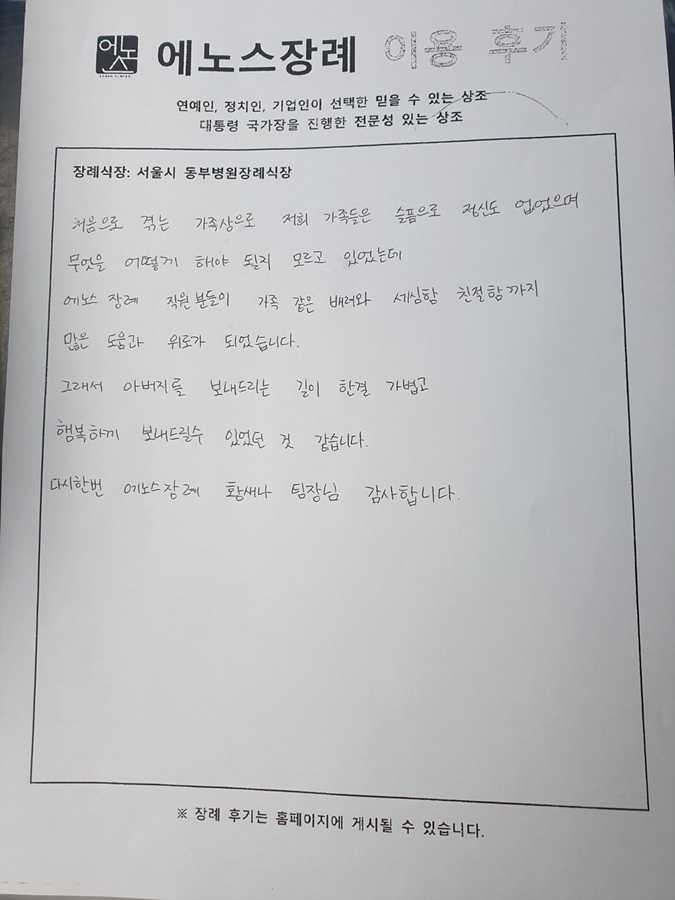 에노스장례 이용 후기
연예인, 정치인, 기업인이 선택한 믿을 수 있는 상조
대통령 국가장을 진행한 전문성 있는 상조
장례식장: 서울시 동부병원장례식장
처음으로 겪는 가족상으로 저희 가족들은 슬픔으로 정신도 없었으며
무엇을 어떻게 해야 될지 모르고 있었는데
에노스 장례 직원분들이 가족 같은 배려와 세심함 친절함까지
많은 도움과 위로가 되었습니다.
그래서 아버지를 보내드리는 길이 한결 가볍고
행복하게 보내드릴수 있었던 것 같습니다.
다시한번 에노스장례 황새나 팀장님 감사합니다.
※ 장례 후기는 홈페이지에 게시될 수 있습니다.